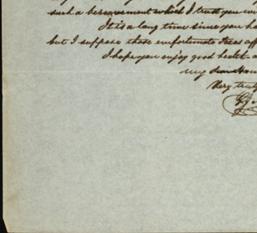 such a bereavement which I trust you
It is a long time since you ha
but I suppose these unfortunate
I hope you enjoy good health
my dear
Very truly